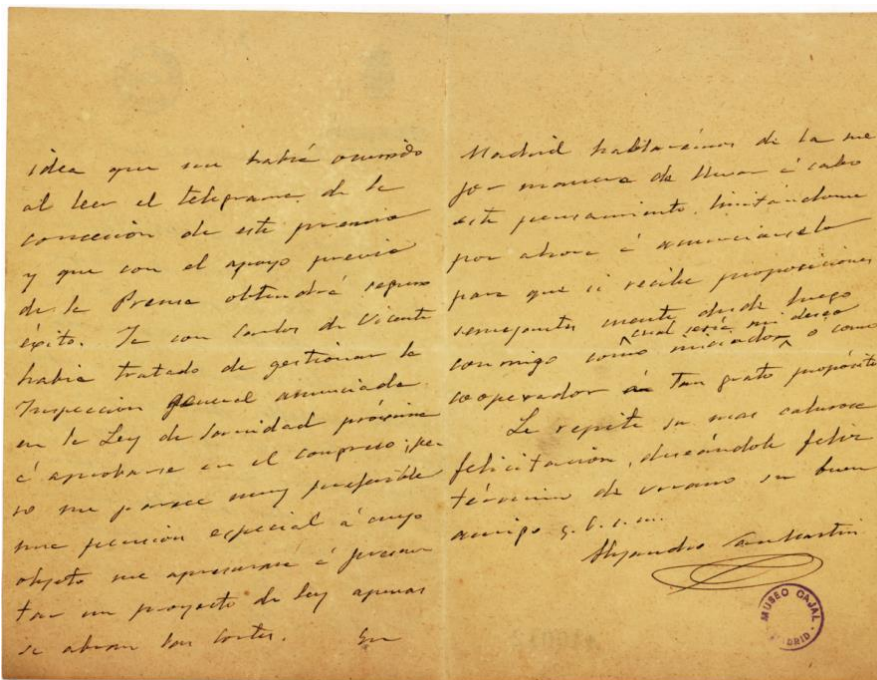 idea que me había ocurrido
al leer el telegrama de la
concesión de este premio
y que con el apoyo previo
de la Prensa obtendrá seguro
éxito. Ya con Carlos de Vicente
había tratado de gestionar la
Inspección general anunciada
en la Ley de Sanidad próxima
á aprobarse en el Congreso; pe-
ro me parece muy preferible
una pensión especial á cuyo
objeto me apresuraré á presen
tar un proyecto de ley apenas
se abran las Cortes. En
Madrid hablarémos de la me
jor manera de llevar á cabo
este pensamiento, limitándome
por ahora á anunciárselo
para que si recibe proposiciones
semejantes cuente desde luego
cual seria mi deseo
conmigo como iniciador o como
cooperador á tan grato propósito
Le repite su mas calurosa
felicitación, deseándole feliz
término de verano su buen
amigo q. b. s. m.
Alejandro SanMartín
MUSEO CAJAL
MADRID